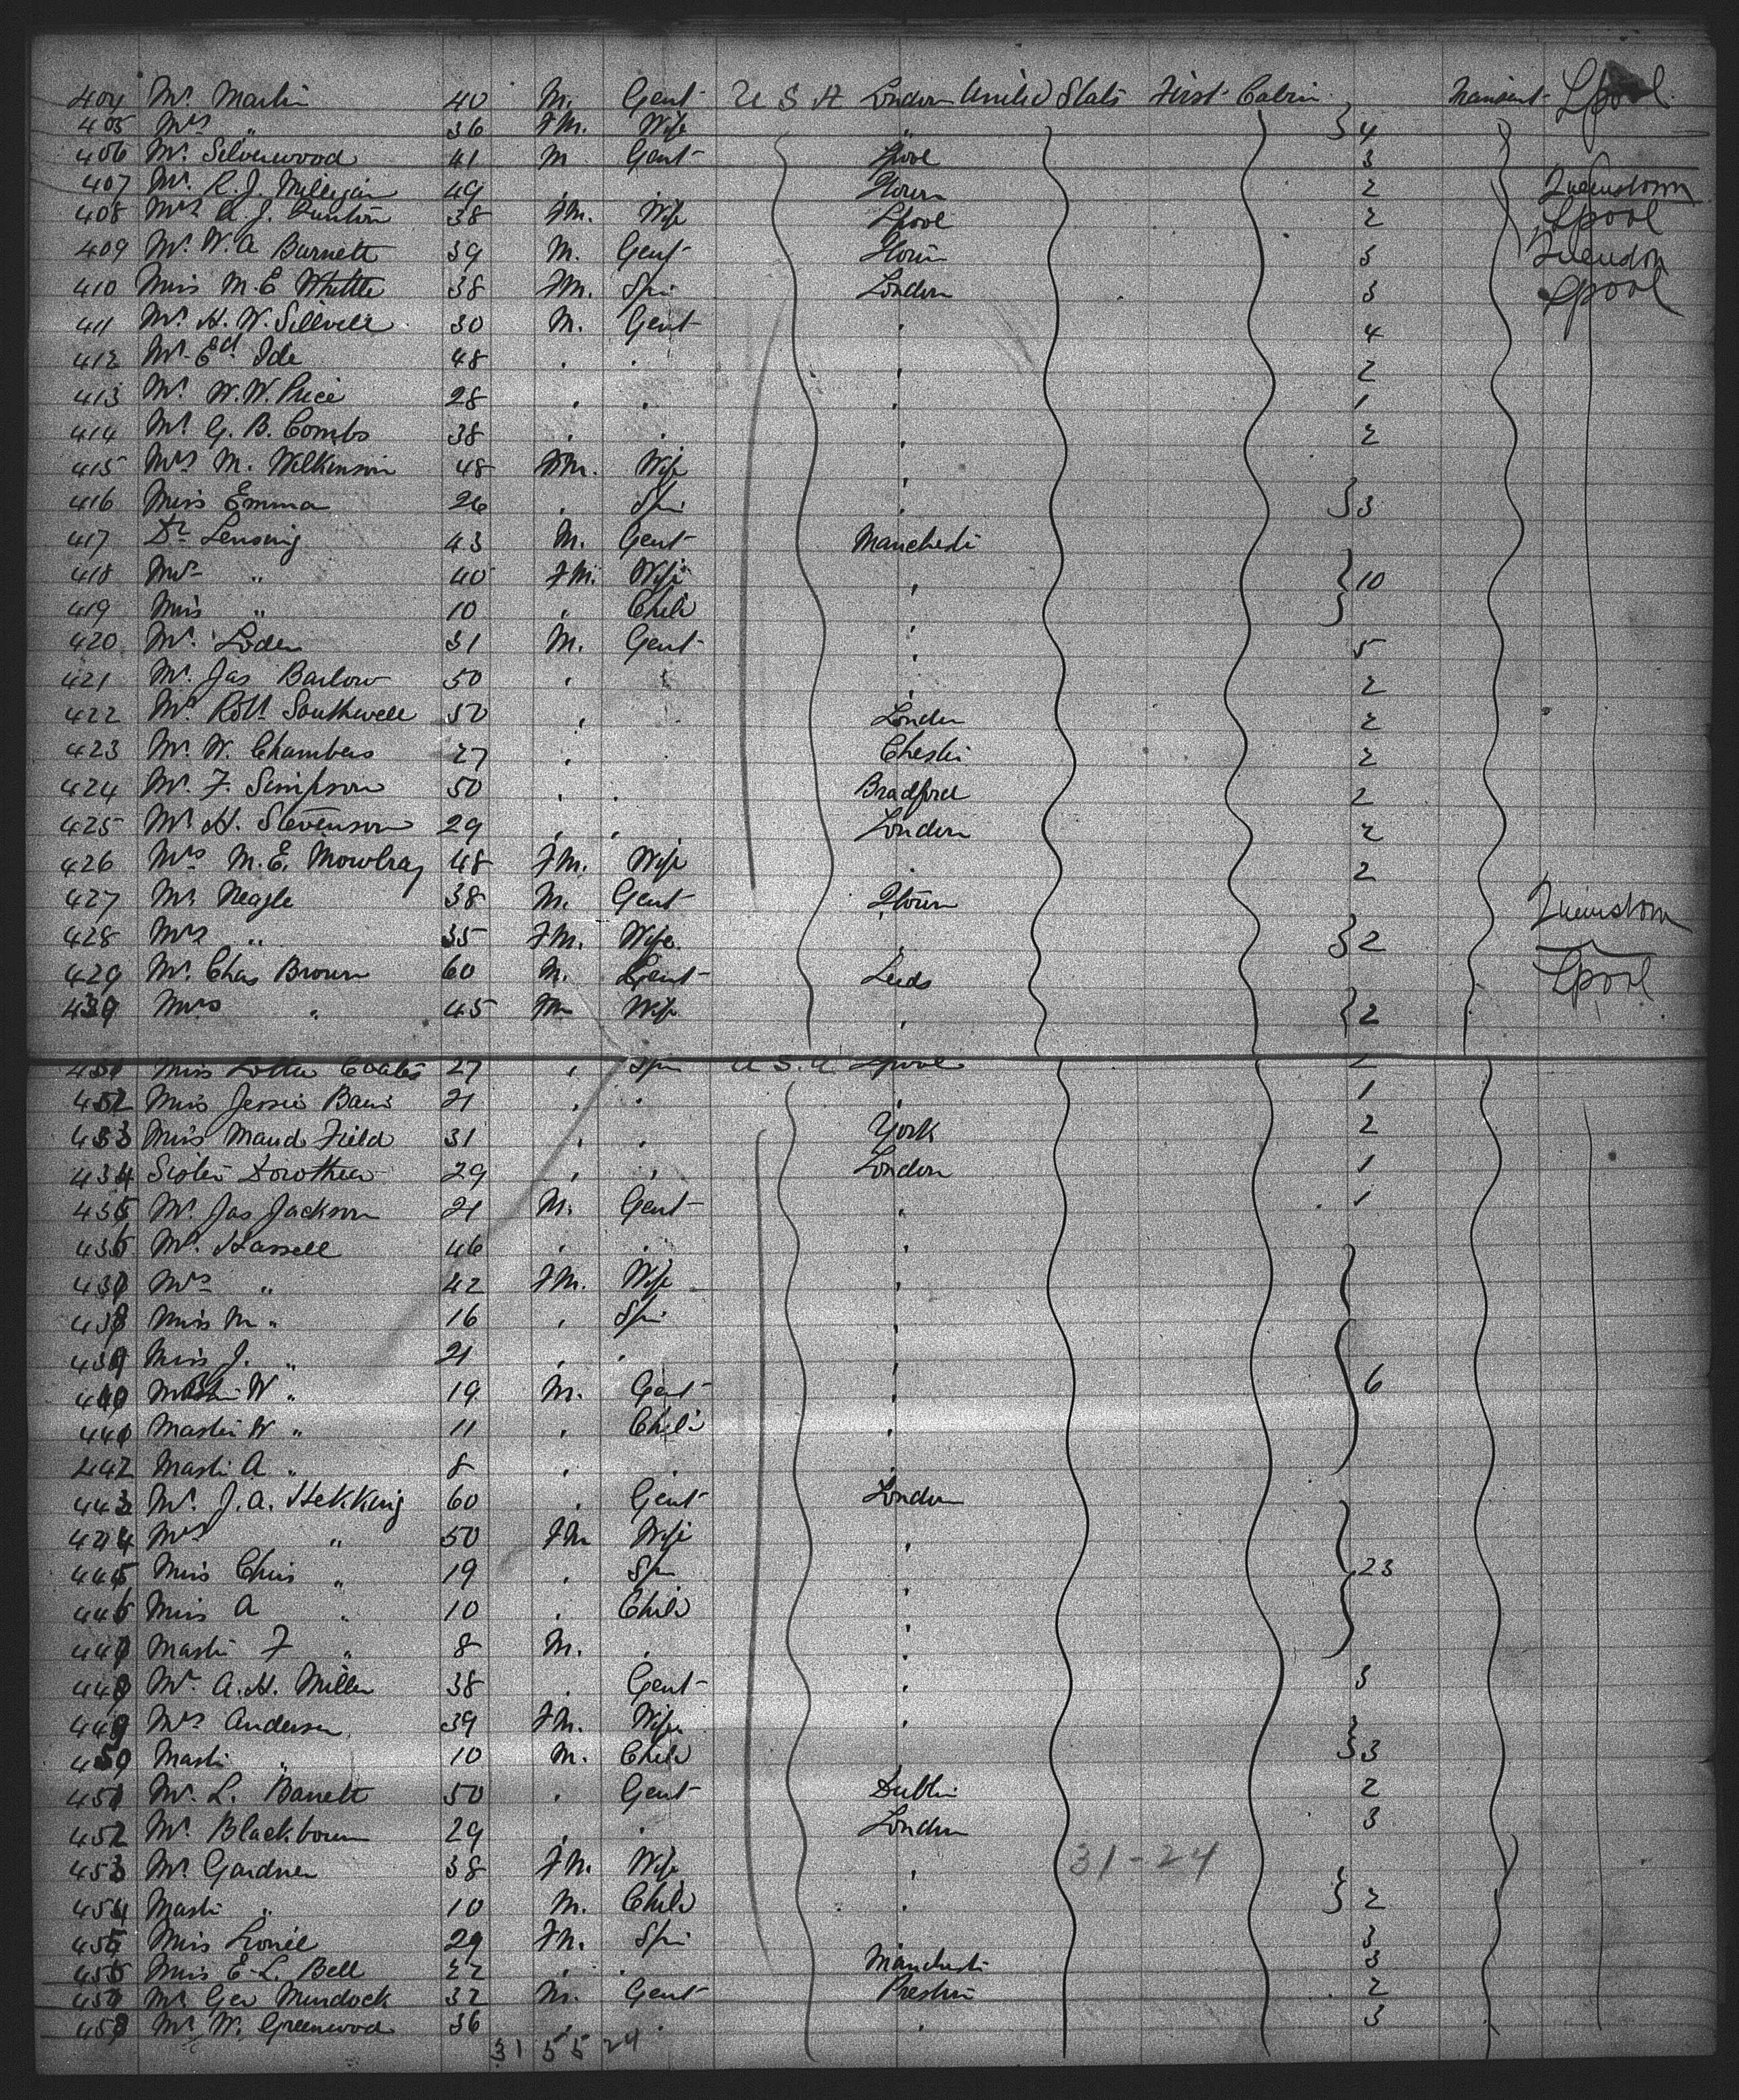 404 Mr. Martin 40 M. Gent U S A London United States First Cabin Transient L'pool
405 Mrs " 36 Fm. Wife " 4
406 Mr. Silverwood 41 M Gent L'pool 3
407 Mr. R. J. Milligan 49 . . Q'town 2 Queenstown
408 Mrs A. J. 38 Fm. Wife L'pool 2 L'pool
409 Mr. W. A Burnett 39 M. Gent Q'town 3
410 Miss M. E Whittle 38 Fm. Spin London 3 L'pool
411 Mr. H. W. 30 M. Gent . 4
412 Mr. Ed. Ide 48 . . . 2
413 Mr. W. W. Price 28 . . . 1
414 Mr. G. B. Combs 38 . . . 2
415 Mrs M. Wilkinson 48 Fm. Wife .
416 Miss Emma 26 . Spin . 3
417 Dr. Lensing 43 M. Gent Manchester
418 Mrs " 40 Fm. Wife . 10
419 Miss " 10 . Child .
420 Mr. Loden 31 M. Gent . 5
421 Mr. Jas Barlow 50 . . . 2
422 Mr. Robt Southwell 50 . London 2
423 Mr. W. Chambers 27 . . Chester 2
424 Mr. F. Simpson 50 . . Bradford 2
425 Mr. H. Stevenson 29 . . London 2
426 Mrs M. E. Mowbray 48 Fm. Wife . 2
427 Mr. Neagle 38 M. Gent Q'town Queenstown
428 Mrs " 35 Fm. Wife . 2
429 Mr. Chas Brown 60 M. Gent Leeds L'pool
430 Mrs " 45 Fm Wife . 2
431 Miss Lottie Coates 27 . Spin U. S. A L'pool 2
432 Miss Jessie 21 . . . 1
433 Miss Maud Field 31 . . York 2
434 Sister Dorothea 29 . . London 1
435 Mr. Jas Jackson 21 M. Gent . 1
436 Mr. Hassell 46 . . .
437 Mrs " 42 Fm. Wife .
438 Miss M " 16 . Spin .
439 Miss J. " 21 . . .
440 W " 19 M. Gent . 6
441 Master W " 11 . Child .
442 Master A " 8 . . .
443 Mr. J. A. Hekking 60 . Gent London
444 Mrs " 50 Fm Wife .
445 Miss Chris " 19 . Spin . 23
446 Miss A " 10 . Child .
447 Master F " 8 M. . .
448 Mr. A. H. Miller 38 . Gent . 3
449 Mrs Anderson 39 Fm. Wife .
450 Master " 10 M. Child 3
451 Mr. L. Barrett 50 . Gent Dublin 2
452 Mr. Blackbourn 29 . . London 3
453 Mr Gardner 38 Fm. Wife . 31-24
454 Master " 10 M. Child . 2
455 Miss 29 Fm. Spin 3
456 Miss E. L. Bell 22 . . Manchester 3
457 Mr. Geo Murdock 32 M. Gent Preston 2
458 Mr. W. Greenwood 36 . . . 3
31 55 24